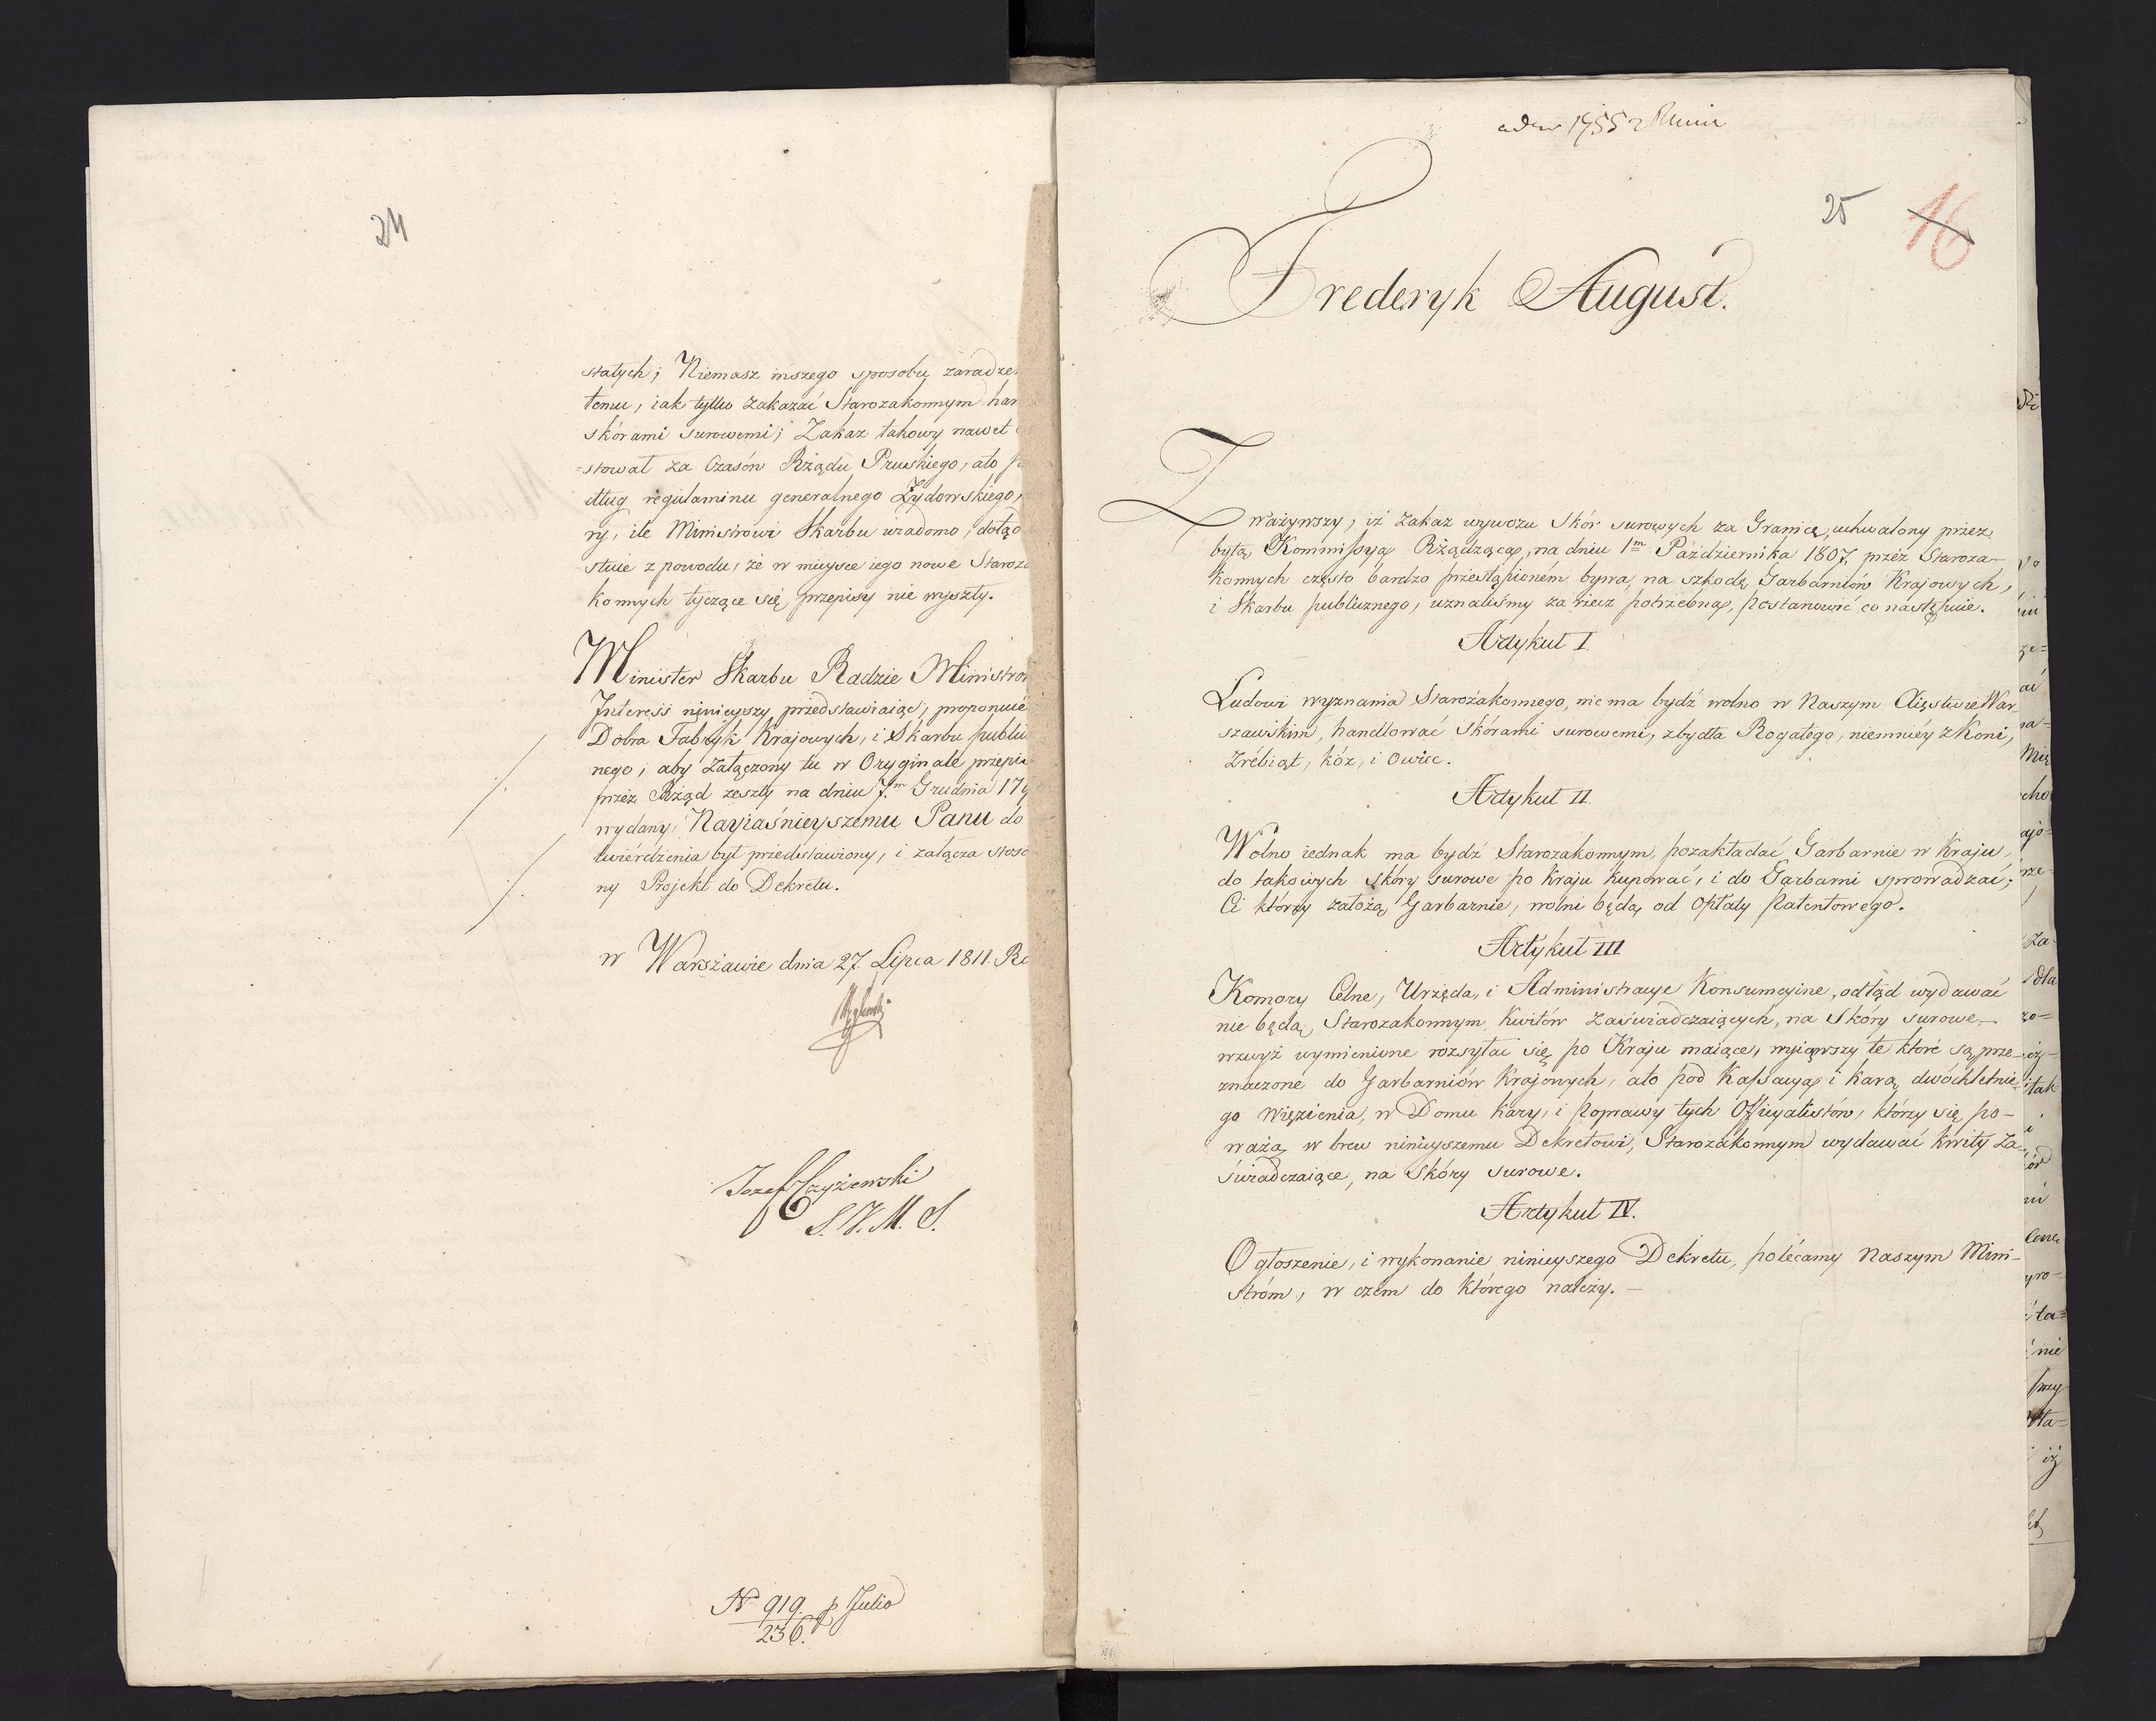 24
stałych; Niemasz inszego sposobu zaradze
temu, iak tylko zakazać Starozakonnym han
skórami surowemi; Zakaz takowy nawet
=stował za Czasów Rządu Pruskiego, a to p
dług regulaminu generalnego Żydowskiego,
ry, ile Ministrowi Skarbu wiadomo, dotąd
stnie z powodu, że w mieysce iego nowe Staroza
konnych tyczące się przepisy nie wyszły.
Minister Skarbu Radzie Ministrów
Interess ninieyszy przedstawiaiąc, proponuie
Dobra Fabryk Krajowych, i Skarbu publi
nego, aby załączony tu w Oryginale przepis
przez Rząd zeszły na dniu 7m Grudnia 179
wydany, Nayiaśnieyszemu Panu do
twierdzenia był przedstawiony, i załącza stoso
ny Projekt do Dekretu.
w Warszawie dnia 27 Lipca 1811. Ro
Jozef Czyżewski
S. J. M. S.
N 919. p Julio
236.
1955
25 16
Frederyk August.
Zważywszy, iż zakaz wywozu Skór surowych za Granicę, uchwalony przez
byłą Kommissyą Rządzącą, na dniu 1m Października 1807, przez Staroza-
konnych często bardzo przestąpioném bywa, na szkodę Garbarniów Krajowych,
i Skarbu publicznego, uznaliśmy za rzecz potrzebną, postanowić co następuie.
Artykuł I.
Ludowi wyznania Starozakonnego, nie ma bydź wolno w Naszym Xięstwie War
szawskim, handlować Skórami surowemi, z bydła Rogatego, niemniéy z Koni,
Zrébiąt, kóz, i Owiec.
Artykuł II
Wolno iednak ma bydź Starozakonnym, pozakładać Garbarnie w Kraju,
do takowych skóry surowe po kraju kupować, i do Garbarni sprowadzać;
Ci którzy założą Garbarnie, wolni będą od Opłaty Patentowego.
Artykuł III
Komory Celne, Urzęda, i Administracye Konsumcyine, odtąd wydawać
nie będą Starozakonnym, Kwitów Zaświadczaiących, na Skóry surowe
wzwyż wymienione rozsyłać się po Kraju maiące, wyiąwszy te które są prze-
znaczone do Garbarniów Krajowych, a to pod Kassacyą i karą dwóchletnie
go Więzienia, w Domu kary, i Poprawy tych Officyalistów, którzy się po-
ważą w brew ninieyszemu Dekretowi, Starozakonnym wydawać kwity Za-
świadczaiące, na Skóry surowe.
Artykuł IV.
Ogłoszenie, i wykonanie ninieyszego Dekretu, polécamy Naszym Mini-
stróm, w czem do którego należy. —